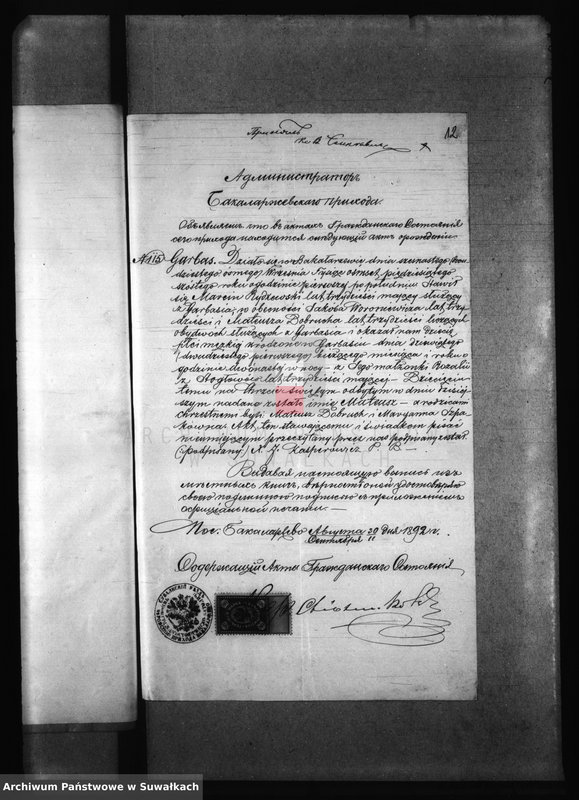 12
Принялъ
Администраторъ
Бакаларжевскаго прихода.
Объявляемъ что въ актахъ Гражданскаго Состоянія
сего прихода находится слѣдующій актъ о рожденіи
N 115 Garbas. Działo się w Bakałarzewie dnia
dziestego ósmego Września Tysiąc ośmset piędziesiątego
szóstego roku o godzinie pierwszej po południu Stawił
się Marcin Rydzewski lat trzydzieści mający służący
z Garbasia, w obecności Jakóba Woronowicza lat trzy
dzieści i Mateusza Dobrucha lat trzydzieści liczących
obydwóch służących z Garbasia i okazał nam dziecię
płci męzkiej urodzone w Garbasiu dnia dziewiątego
/dwudziestego pierwszego/ bieżącego miesiąca i roku o
godzinie dwónastej w nocy – z Jego małżonki Rozalii
z lat trzydzieści mającej – Dziecięciu
temu na Chrzcie świętym odbytym w dniu dzisiej
szym nadane zostało imię Mateusz – a rodzicami
chrzestnemi byli Mateusz Dobruch i Maryanna Szpa
kówna. Akt ten stawającemu i świadkom pisać
nieumiejącym przeczytany przez nas podpisany został.
(podpisany) X. J. Kasperowicz P. B. –
Выдавая настоящую выпись изъ
мѣстныхъ книгъ, вѣрность оной удостовѣряю
своею подлинною подписью съ приложеніемъ
оффиціальной печати. –
Пос. Бакаларжево Августа 30 дня 1892 г.
Сентября 11
Содержащій Акта Гражданскаго Состоянія
Archiwum Państwowe w Suwałkach